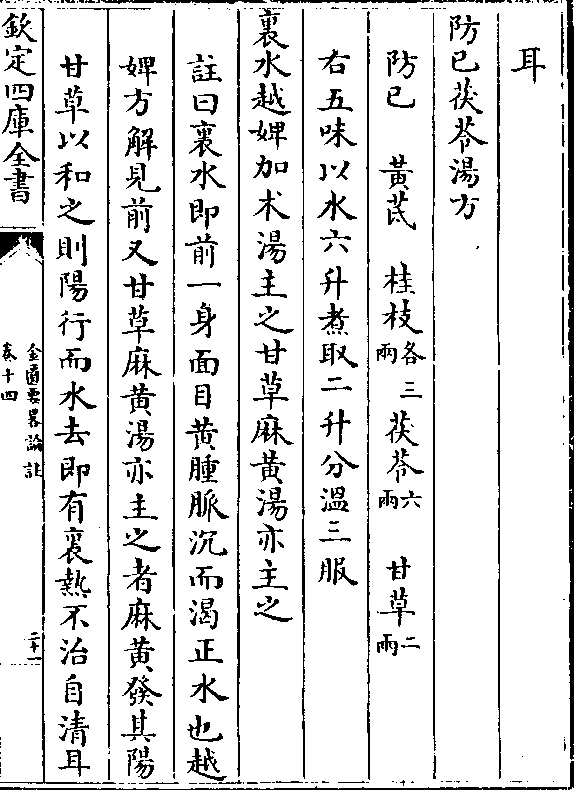 耳
防已茯苓湯方
防已　黃芪　桂枝各三兩　茯苓六兩　甘草二兩
右五味以水六升煮取二升分溫三服
裏水越婢加朮湯主之甘草麻黃湯亦主之
註曰裏水即前一身面目黃腫脈沉而渴正水也越
婢方解見前又甘草麻黃湯亦主之者麻黃發其陽
甘草以和之則陽行而水去即有裏熱不治自清耳
欽定四庫全書
金匱要畧論註
卷十四
二十一